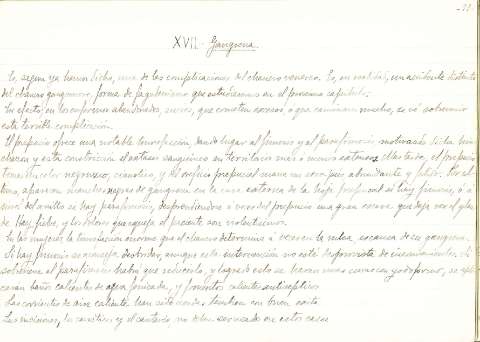 XVII.- Gangrena
Es, segun ya hemos dicho, una de las complicaciones del chancro venereo. Es, en realidad, un accidente distinto
del chancro gangrenoso, forma de fagedenismo que estudiaremos en el proximo capitulo.
En efecto, en los enfermos abandonados, sucios, que cometen excesos, o que caminan mucho, se vé sobrevenir
esta terrible complicación.
El prepucio ofrece una notable tumefacción, dando lugar al fimosis y al parafimosis
chancro y esta constriccion el extasis sanguineo en territorio más o menos extenso el prepucio
toma un color negruzco, cianotico, y del orificio prepucial mana un abundante y fetido. Por
aparecen manchas negras de gangrena en la cara externa de la hoja prepucial si hay fimosis, ó á
nivel del anillo si hay parafimosis, desprendiendose á veces del prepucio una gran escara que deja ver el glan
de. Hay fiebre, y los dolores que aquejan al paciente son violentisimos.
En las mujeres la tumefaccion enorme que el chancro determina á veces en la vulva, es causa de su gangrena.
Si hay fimosis se aconseja desbridar, aunque esta intervención no está desprovista de inconvenientes. Si
sobreviene el parafimosis habrá que reducirlo, y logrado esto se haran curas con yodoformo, se apli
caran baños calientes de agua fenicada, y fomentos calientes antisepticos
Las corrientes de aire caliente han sido usadas tambien con buen exito
Las incisiones, los causticos y el cauterio, no deben ser usados en estos casos